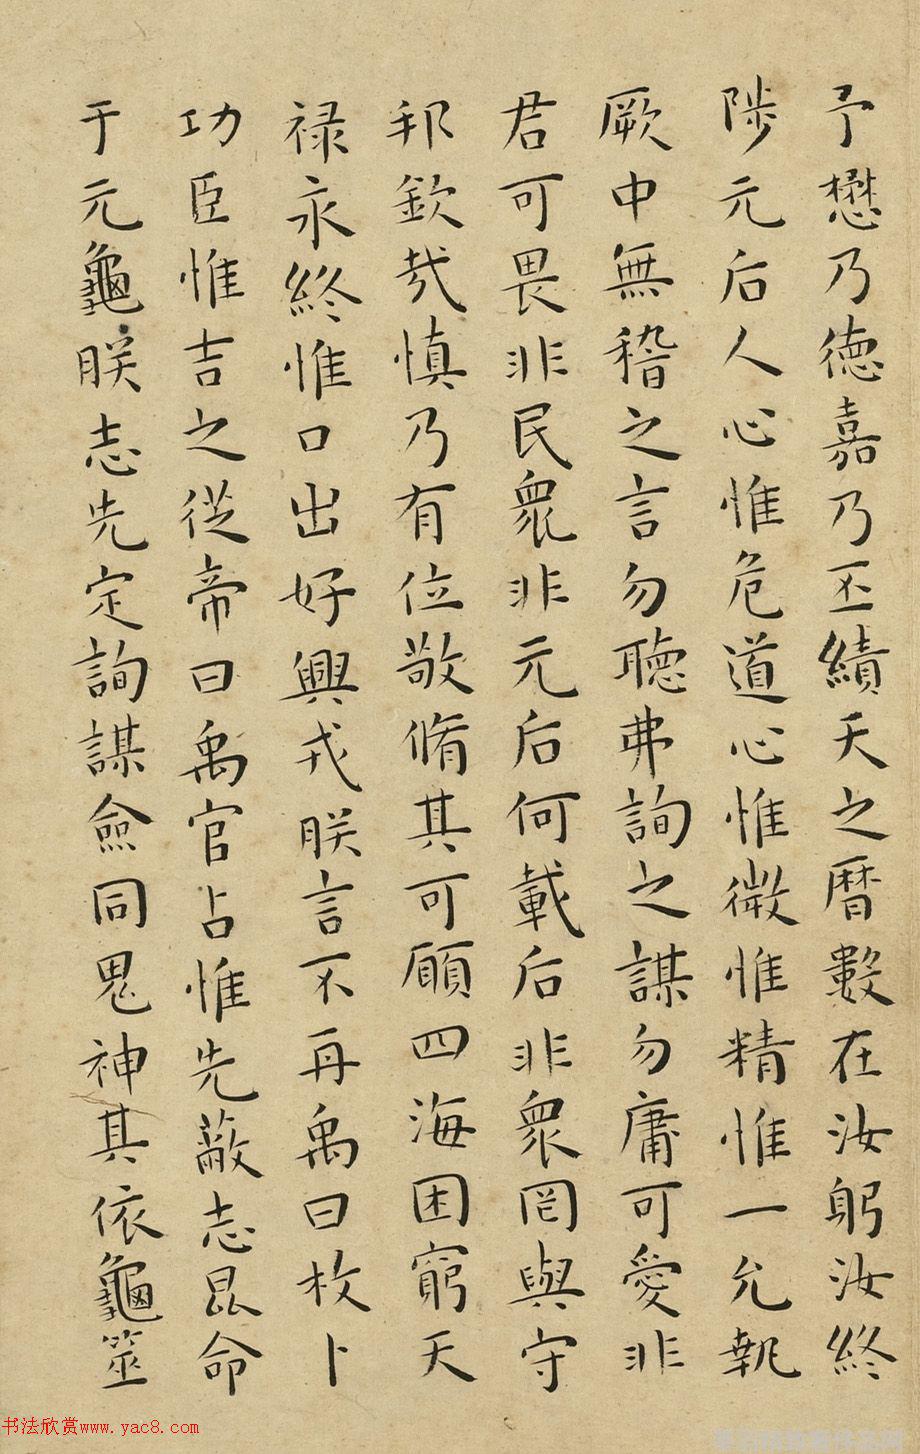 予懋乃德嘉乃丕績天之曆數在汝躬汝終
陟元后人心惟危道心惟微惟精惟一允執
厥中無稽之言勿聽弗詢之謀勿庸可愛非
君可畏非民衆非元后何載后非衆罔與守
邦欽哉慎乃有位敬脩其可願四海困窮天
禄永終惟口出好興戎朕言不再禹曰枚卜
功臣惟吉之從帝曰禹官占惟先蔽志昆命
于元龜朕志先定詢謀僉同鬼神其依龜筮
书法欣赏www.yac8.com